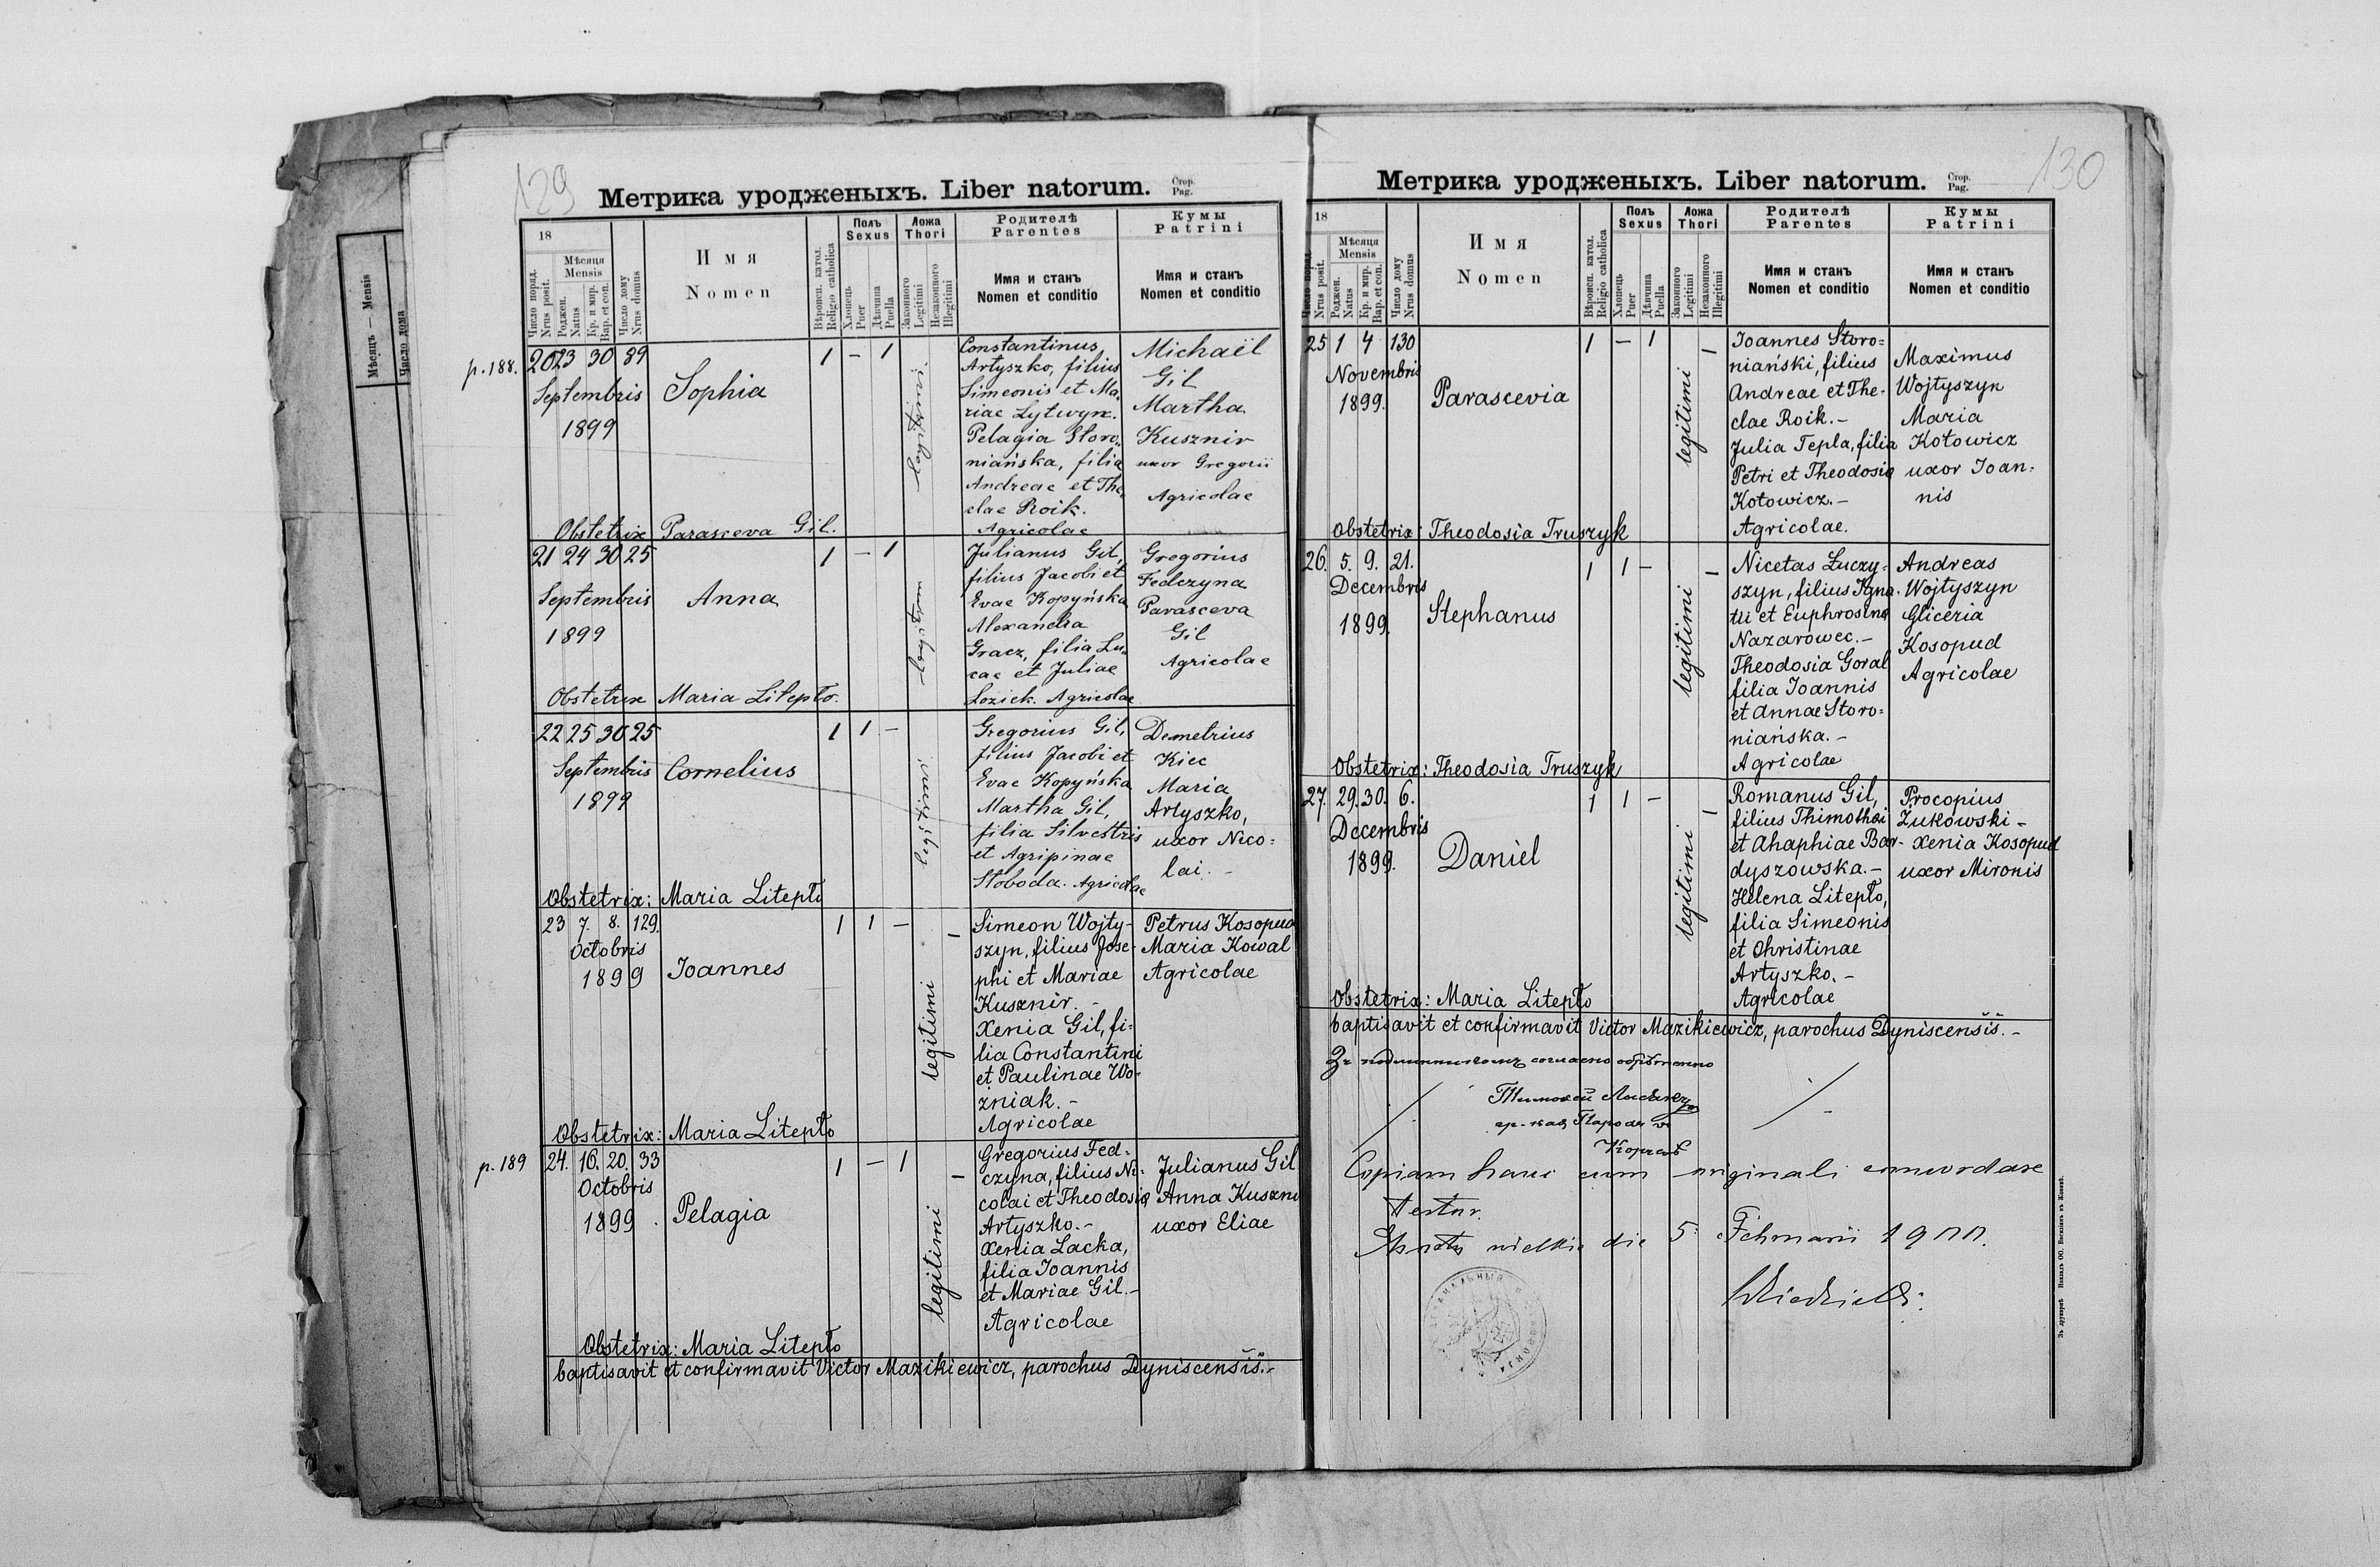 129
Метрика уродженыхъ. Liber natorum.
Стор.
Pag.
Мѣсяцъ — Mensis
Число дома
18
Число поряд.
Nrus posit.
Мѣсяця
Mensis
Рожден.
Natus
Кр. и мир.
Bap. et con.
Число дому
Nrus domus
Имя
Nomen
Вѣроисп. катол.
Religio catholica
Полъ
Sexus
Хлопець
Puer
Дѣвчина
Puella
Ложа
Thori
Законного
Legitimi
Незаконного
Illegitimi
Родителѣ
Parentes
Имя и станъ
Nomen et conditio
Кумы
Patrini
Имя и станъ
Nomen et conditio
p. 188.
20 23 30 89
Septembris
1899
Sophia
1 – 1
legitimi
Constantinus
Artyszko, filius
Simeonis et Ma„
riae Lytwyn.
Pelagia Storo„
niańska, filia
Andreae et The„
clae Roik.
Agricolae
Michaël
Gil
Martha
Kusznir
uxor Gregorii
Agricolae
Obstetrix Parasceva Gil.
21 24 30 25
Septembris
1899
Anna
1 – 1
legitimi
Julianus Gil,
filius Jacobi et
Evae Kopyńska
Alexandra
Gracz, filia Lu„
cae et Juliae
Lozick. Agricolae
Gregorius
Fedczyna
Parasceva
Gil
Agricolae
Obstetrix Maria Litepło.
22 25 30 25
Septembris
1899
Cornelius
1 1 –
legitimi
Gregorius Gil,
filius Jacobi et
Evae Kopyńska
Martha Gil,
filia Silvestris
et Agripinae
Słoboda. Agricolae
Demetrius
Kiec
Maria
Artyszko,
uxor Nico=
lai. –
Obstetrix: Maria Litepło
23 7. 8. 129.
Octobris
1899
Joannes
1 1 – –
legitimi
Simeon Wojty-
szyn, filius Jose-
phi et Mariae
Kusznir. –
Xenia Gil, fi=
lia Constantini
et Paulinae Wo-
zniak. –
Agricolae
Petrus Kosopud
Maria Kowal
Agricolae
Obstetrix: Maria Litepło
p. 189
24. 16. 20. 33
Octobris
1899
Pelagia
1 – 1 –
legitimi
Gregorius Fed=
czyna, filius Ni-
colai et Theodosia
Artyszko. –
Xenia Lacka,
filia Joannis
et Mariae Gil. –
Agricolae
Julianus Gil
Anna Kuszni
uxor Eliae
Obstetrix: Maria Litepło
baptisavit et confirmavit Victor Mazikiewicz, parochus Dyniscensis. –
130
Метрика уродженыхъ. Liber natorum.
Стор.
Pag.
18
Число поряд.
Nrus posit.
Мѣсяця
Mensis
Рожден.
Natus
Кр. и мир.
Bap. et con.
Число дому
Nrus domus
Имя
Nomen
Вѣроисп. катол.
Religio catholica
Полъ
Sexus
Хлопець
Puer
Дѣвчина
Puella
Ложа
Thori
Законного
Legitimi
Незаконного
Illegitimi
Родителѣ
Parentes
Имя и станъ
Nomen et conditio
Кумы
Patrini
Имя и станъ
Nomen et conditio
25 1 4 130
Novembris
1899.
Parascevia
1 – 1 –
legitimi
Joannes Storo=
niański, filius
Andreae et The-
clae Roik. –
Julia Tepla, filia
Petri et Theodosia
Kotowicz. –
Agricolae.
Maximus
Wojtyszyn
Maria
Kotowicz
uxor Joan=
nis
Obstetrix: Theodosia Truszyk
26. 5. 9. 21.
Decembris
1899.
Stephanus
1 1 – –
legitimi
Nicetas Łuczy-
szyn, filius Igna-
tii et Euphrosina
Nazarowec. –
Theodosia Goral
filia Joannis
et Annae Storo=
niańska. –
Agricolae
Andreas
Wojtyszyn
Gliceria
Kosopud
Agricolae
Obstetrix: Theodosia Truszyk
27. 29. 30. 6.
Decembris
1899.
Daniel
1 1 – –
legitimi
Romanus Gil,
filius Thimothei
et Ahaphiae Bar-
dyszowska. –
Helena Litepło,
filia Simeonis
et Christinae
Artyszko. –
Agricolae
Procopius
Żukowski –
Xenia Kosopud
uxor Mironis
Obstetrix: Maria Litepło
baptisavit et confirmavit Victor Mazikiewicz, parochus Dyniscensis. –
Зъ
согласно
Тимофей
гр.-кат.
Copiam hanc cum originali concordare
testor.
die 5. Februarii 1900.